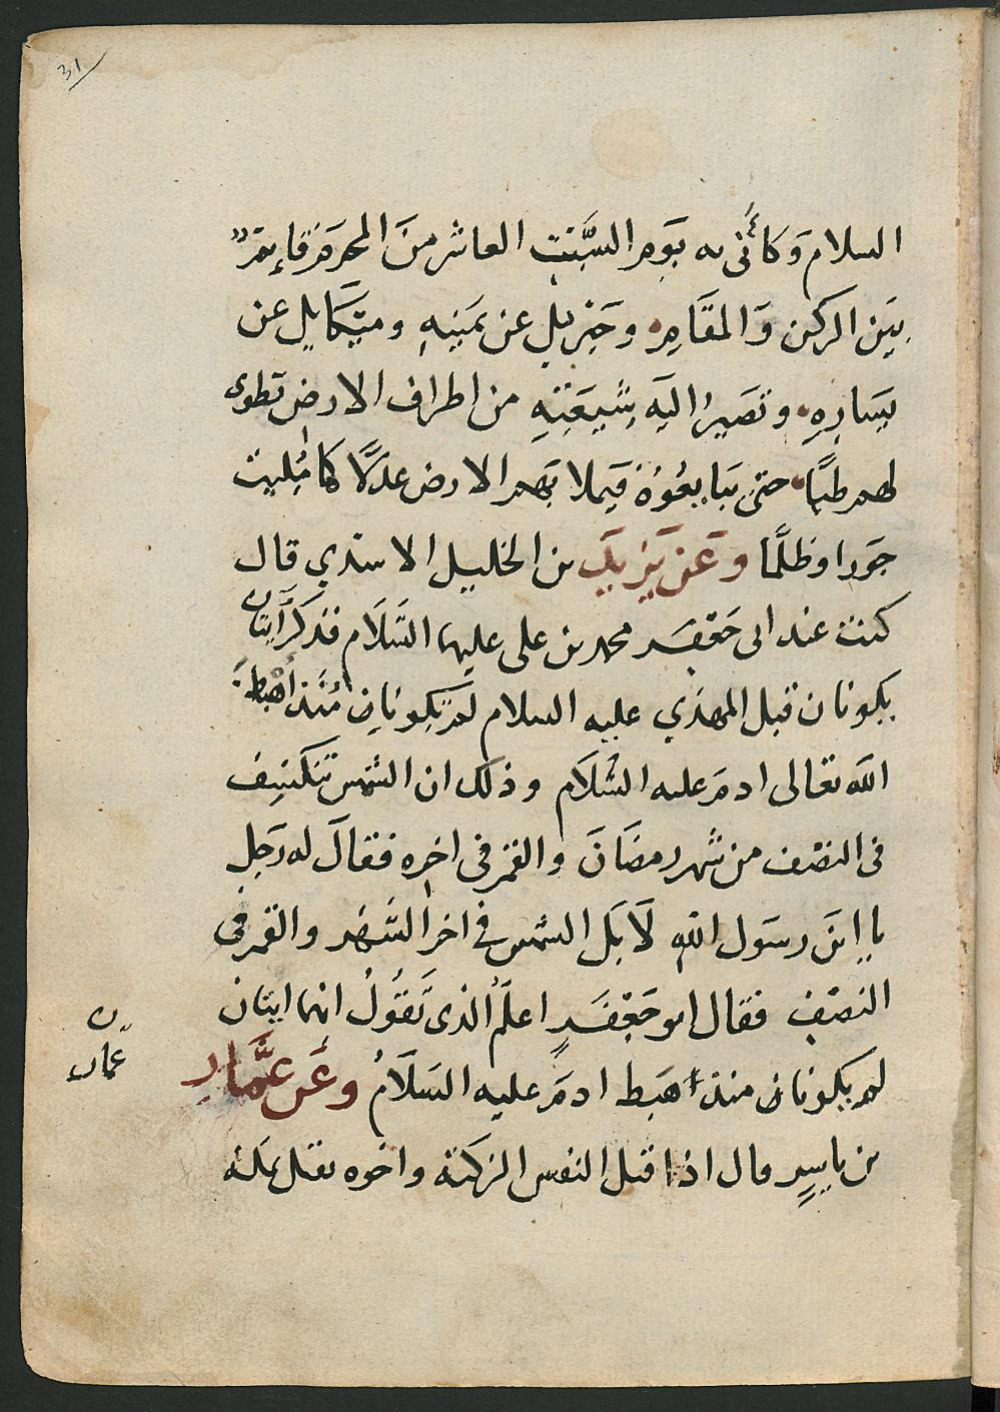 31
السلام وَكَأنّى به يَوم السَّبْت العاشر منَ المحرم قائم
بَيَن الركن وَالمقَام وجَبْريل عن يمَينِهِ وميَكَايل عن
يسَارِهِ وتصَيرُ اليَه شِيعَتِهِ من اطراف الارض تطوى
لهم طيًا حتى يبَايعُوُهُ فيَملا بهم الارض عدلًا كما مُلِيت
جَورا وظلَمًا وَعَن يَزيد بن الخليل الاسدي قال
كنت عند ابى جَعْفَر محمد بن على عليهما السَّلَام فذكَرَ آيتَان
يكونان قبل المهدَي عليه السلام لم يَكونَانِ مُنْذ أهبط
الله تعالى ادمَ عليه السَّلَام وذلك ان الشمس تنكسِف
فى النصْف من شهر رمضَانَ والقمر فى اخره فقالَ له رَجل
يا ابنَ رسَول الله لَا بَل الشمس فى اخر الشَهْر والقمر فى
النصْف فقال ابو جَعْفَرٍ اعلَمُ الذى تَقُولُ انهما ايتان
لم يكونان منذ أهبَط ادمَ عليه السَلَامُ وعَن عمَّارِ
ن
عمار
بن ياسِرٍ قال اذا قتل النفس الزكية واخوه يقتل بمكة